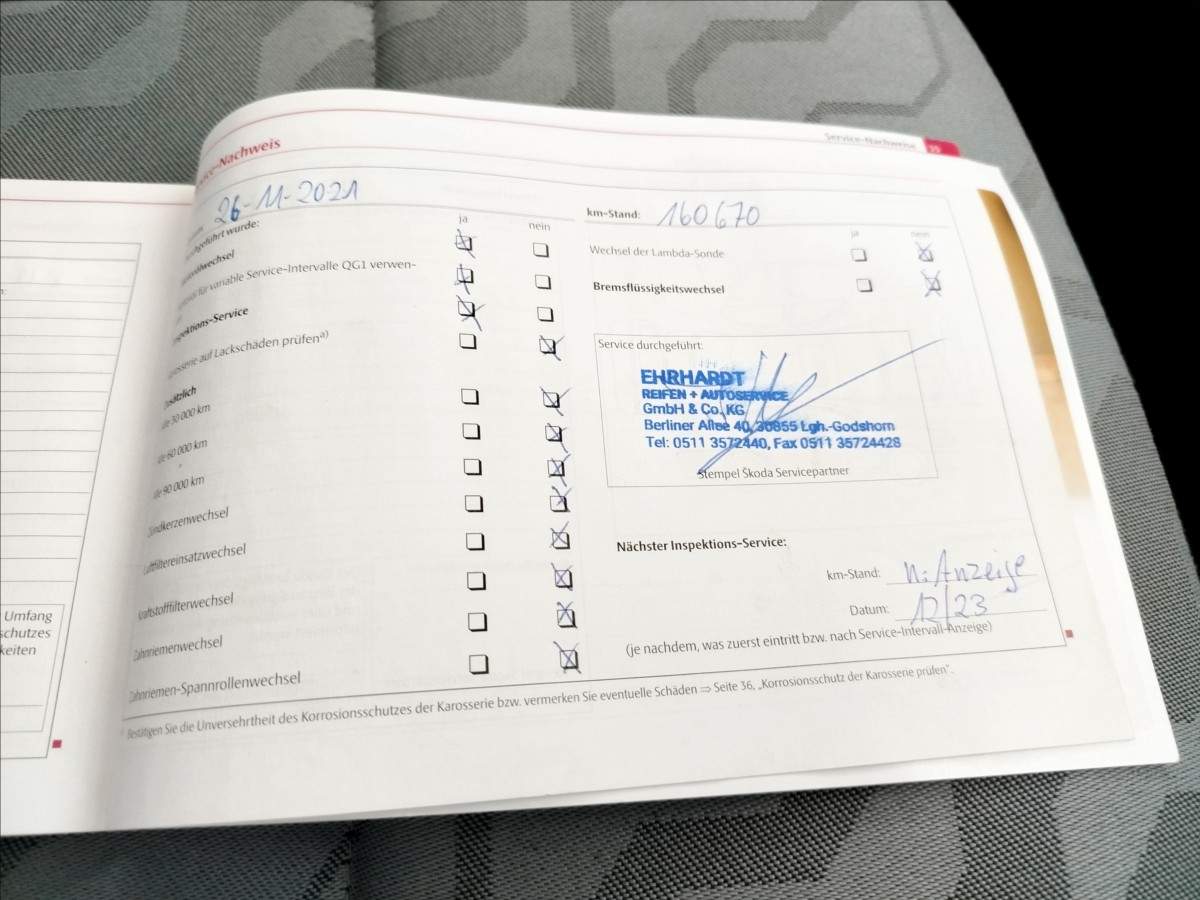 Service-Nachweise 35
-Nachweis
26-11-2021
km-Stand: 160670
wurde:
ja nein
ja nein
Wechsel der Lambda-Sonde
für variable Service-Intervalle QG1 verwen-
Bremsflüssigkeitswechsel
-Service
auf Lackschäden prüfena)
Service durchgeführt:
EHRHARDT
REIFEN + AUTOSERVICE
GmbH & Co. KG
Berliner Allee 40, 30855 Lgh.-Godshorn
Tel: 0511 3572440, Fax 0511 35724428
Stempel Škoda Servicepartner
30 000 km
60 000 km
90 000 km
Zündkerzenwechsel
Luftfiltereinsatzwechsel
Kraftstofffilterwechsel
Zahnriemenwechsel
Zahnriemen-Spannrollenwechsel
Nächster Inspektions-Service:
km-Stand: n. Anzeige
Datum: 12/23
(je nachdem, was zuerst eintritt bzw. nach Service-Intervall-Anzeige)
Bestätigen Sie die Unversehrtheit des Korrosionsschutzes der Karosserie bzw. vermerken Sie eventuelle Schäden ⇒ Seite 36, „Korrosionsschutz der Karosserie prüfen“.
Umfang
schutzes
keiten